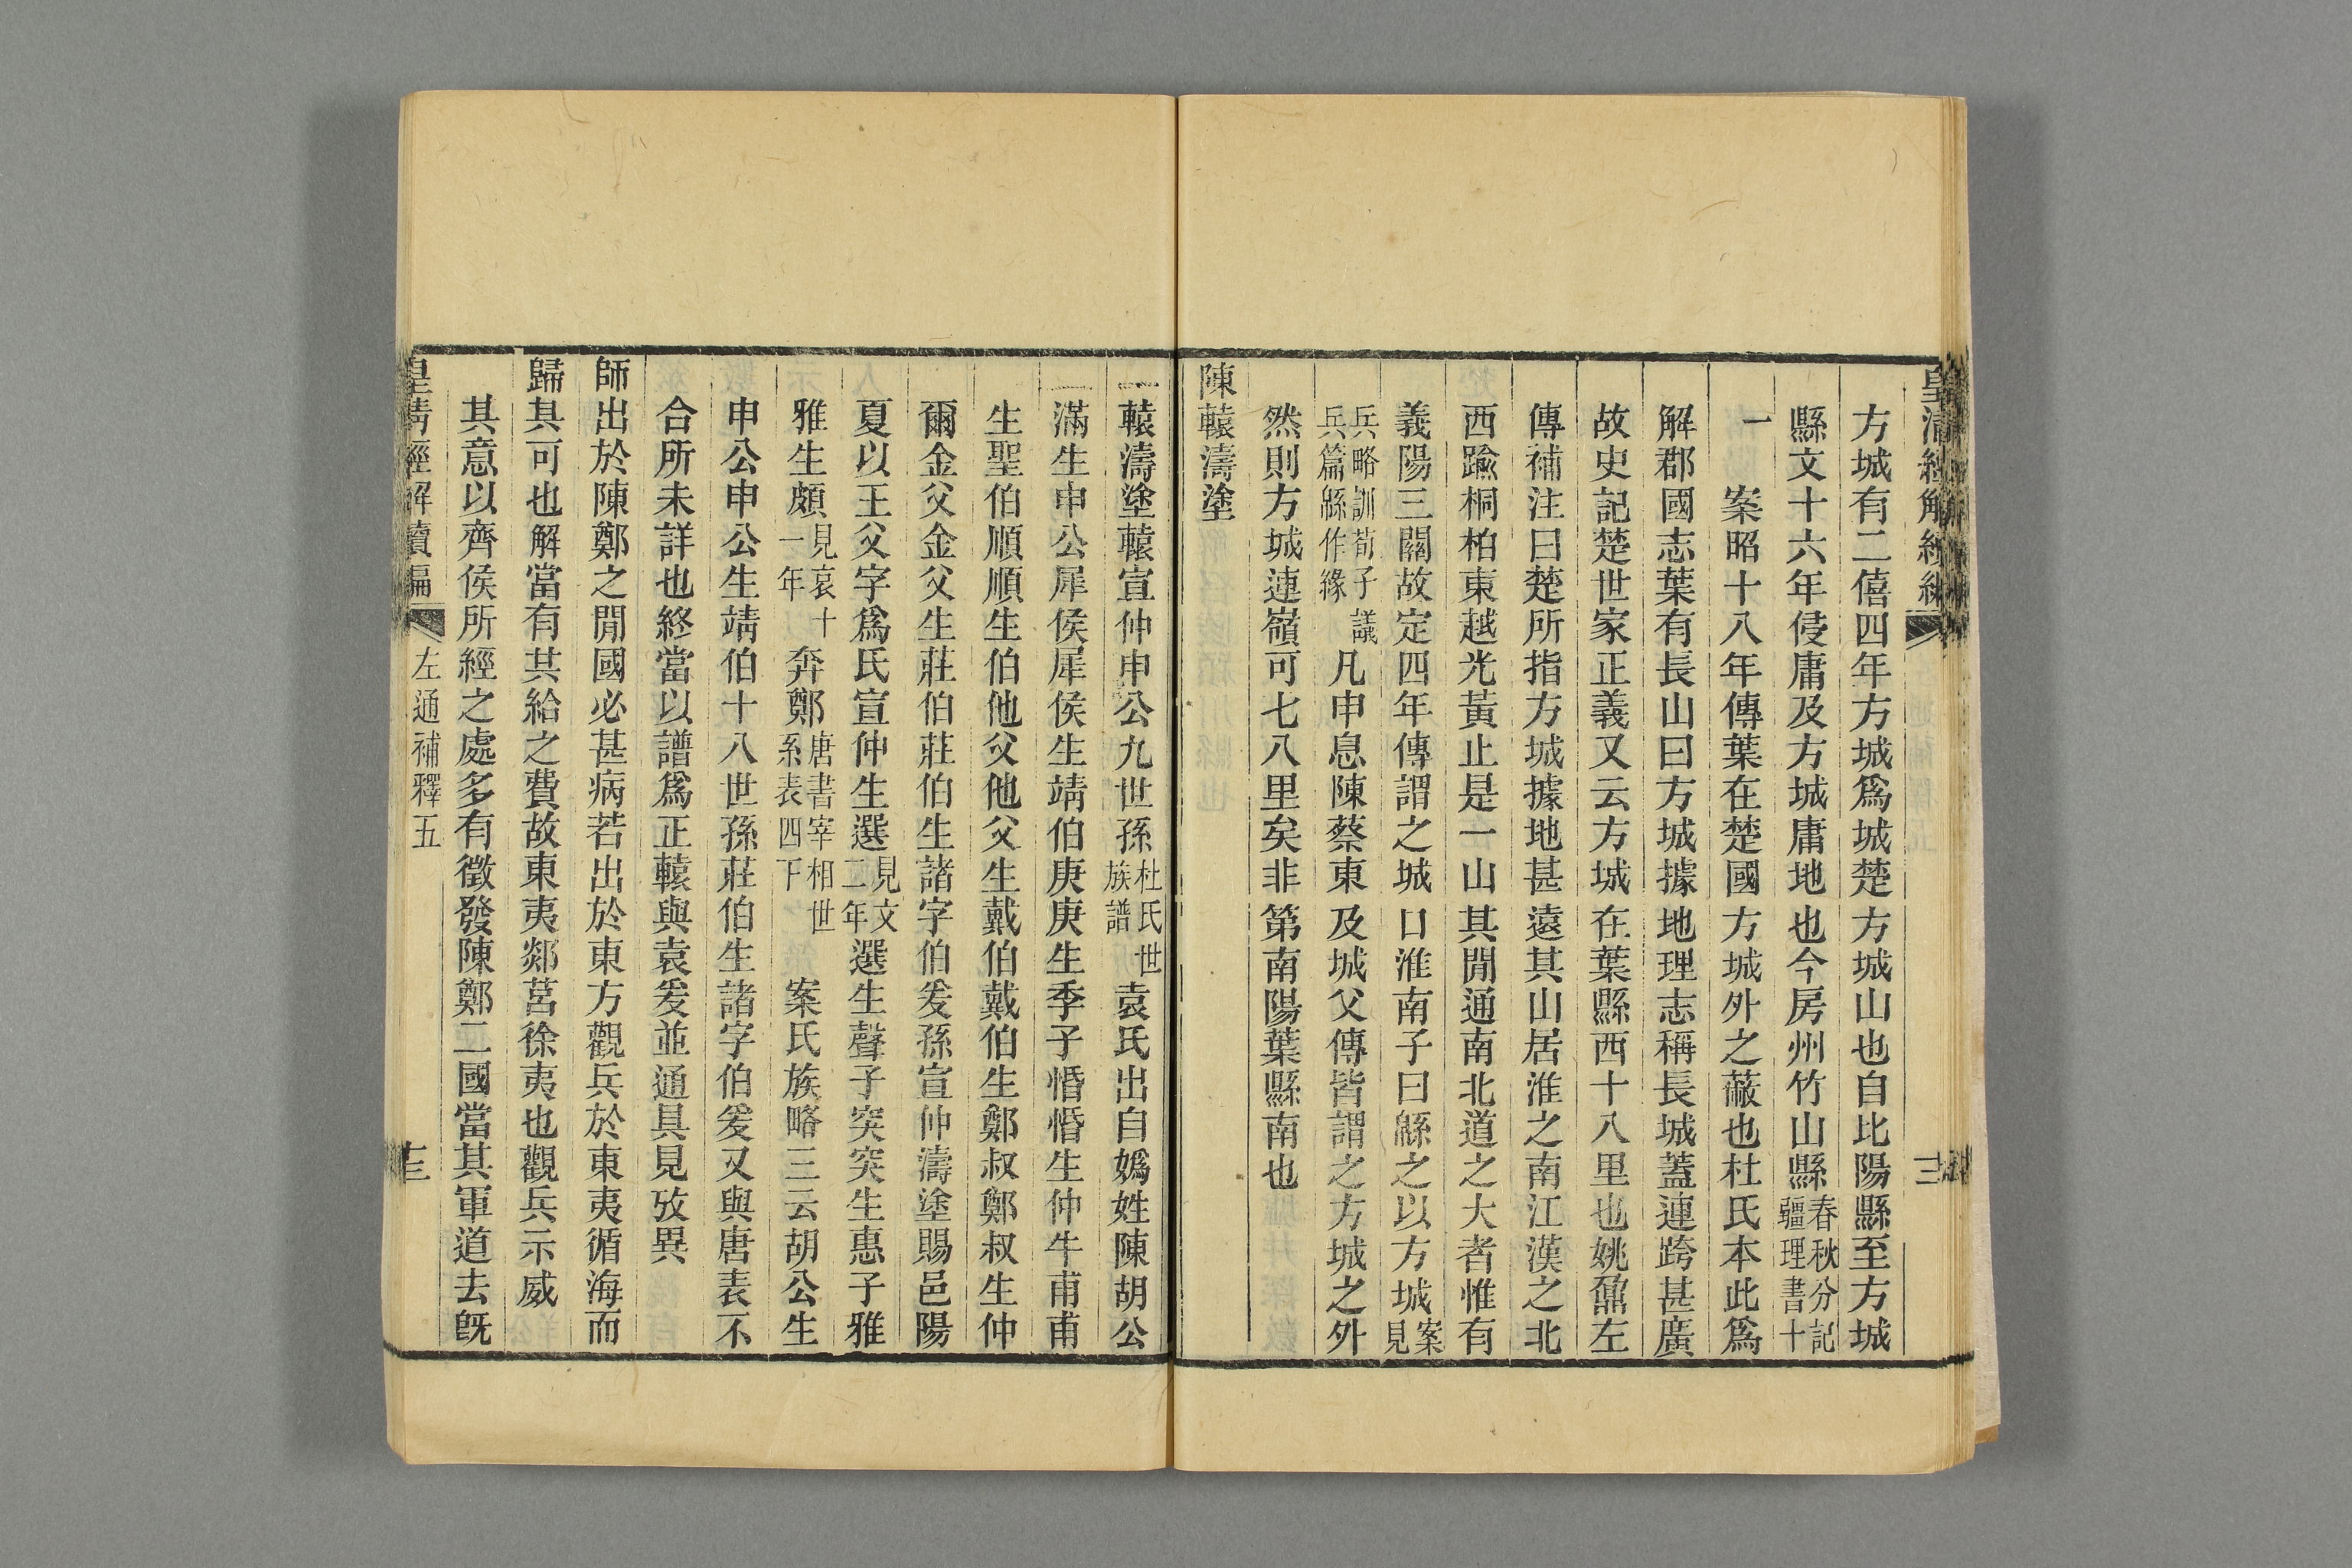 方城有二僖四年方城爲城楚方城山也自比陽縣至方城
縣文十六年侵庸及方城庸地也今房州竹山縣春秋分記疆理書十
一　案昭十八年傳葉在楚國方城外之蔽也杜氏本此爲
解郡國志葉有長山曰方城據地理志稱長城蓋連跨甚廣
故史記楚世家正義又云方城在葉縣西十八里也姚鼐左
傳補注曰楚所指方城據地甚遠其山居淮之南江漢之北
西踰桐柏東越光黃止是一山其閒通南北道之大者惟有
義陽三關故定四年傳謂之城口淮南子曰緜之以方城案見
兵略訓荀子議兵篇緜作緣凡申息陳蔡東及城父傳皆謂之方城之外
然則方城連嶺可七八里矣非第南陽葉縣南也
陳轅濤塗
轅濤塗轅宣仲申公九世孫杜氏世族譜袁氏出自媯姓陳胡公
滿生申公犀侯犀侯生靖伯庚庚生季子惛惛生仲牛甫甫
生聖伯順順生伯他父他父生戴伯戴伯生鄭叔鄭叔生仲
爾金父金父生莊伯莊伯生諸字伯爰孫宣仲濤塗賜邑陽
夏以王父字爲氏宣仲生選見文二年選生聲子突突生惠子雅
雅生頗見哀十一年奔鄭唐書宰相世系表四下　案氏族略三云胡公生
申公申公生靖伯十八世孫莊伯生諸字伯爰又與唐表不
合所未詳也終當以譜爲正轅與袁爰並通具見攷異
師出於陳鄭之閒國必甚病若出於東方觀兵於東夷循海而
歸其可也解當有其給之費故東夷郯莒徐夷也觀兵示威
其意以齊侯所經之處多有徵發陳鄭二國當其軍道去既
皇清經解續編　左通補釋五　十三